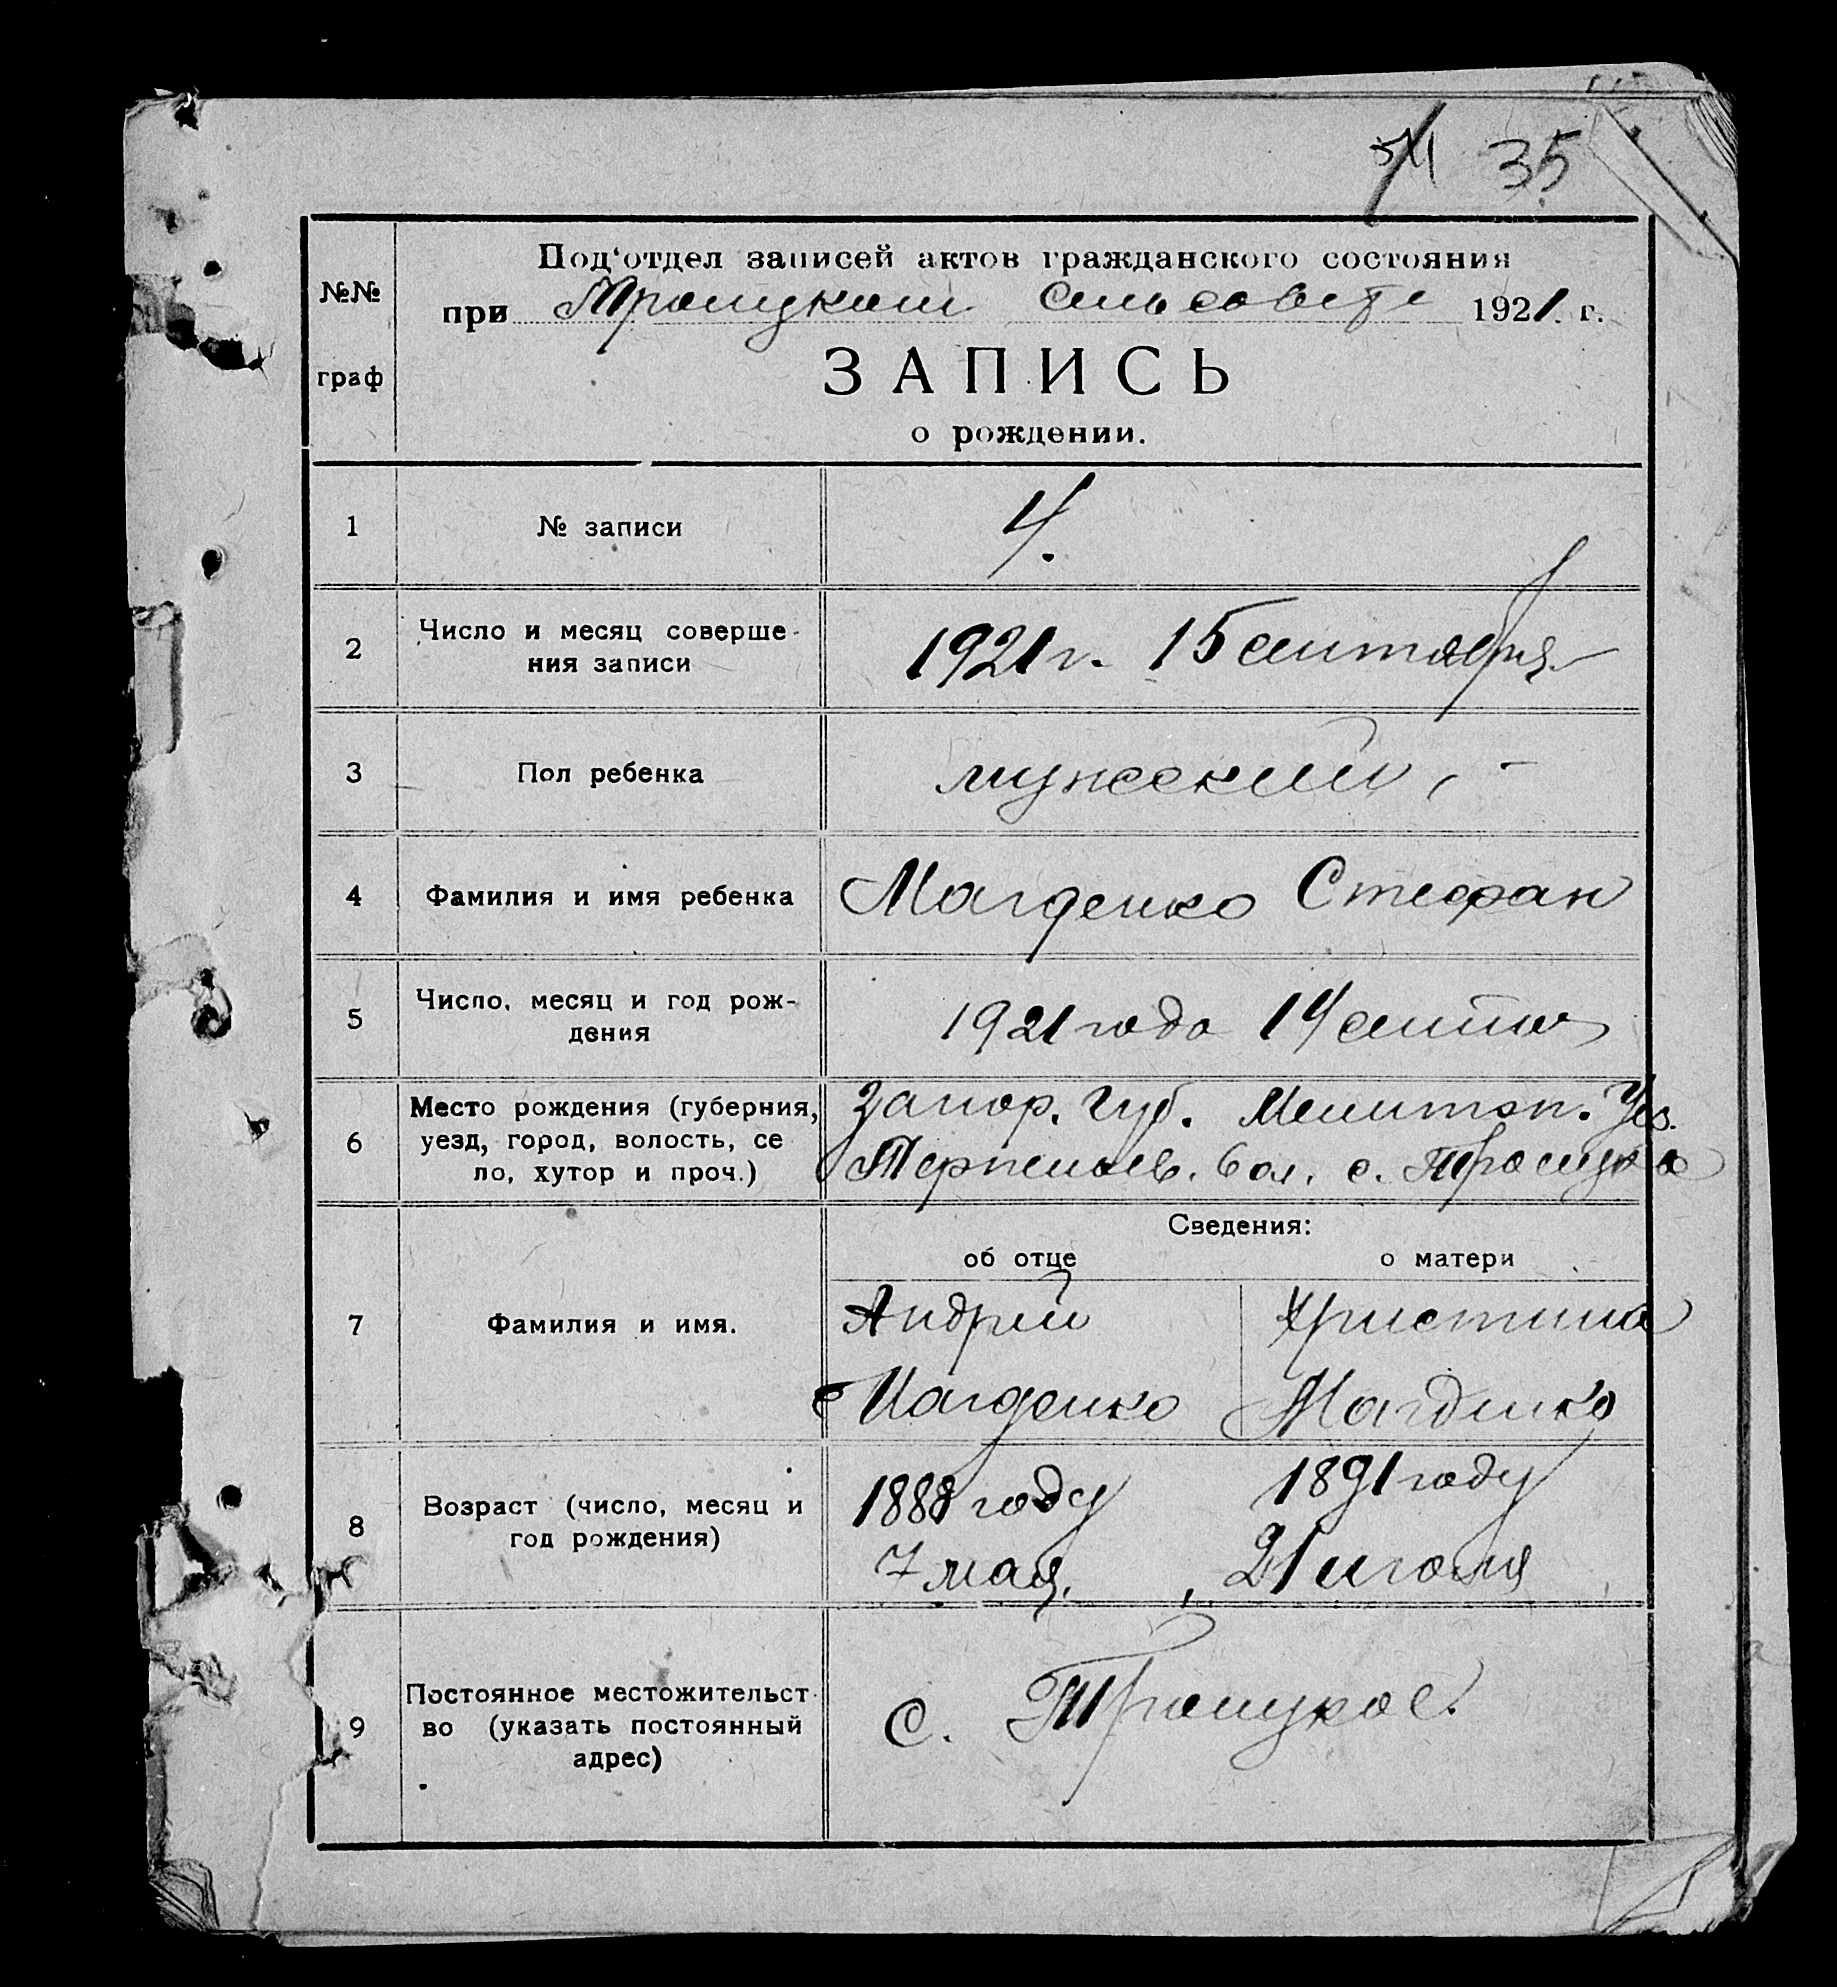 35
№№ граф
Под'отдел записей актов гражданского состояния
при Троицком сельсовете 1921 г.
ЗАПИСЬ
о рождении.
1 № записи 4.
2 Число и месяц соверше-
ния записи 1921 г. 15 сентября
3 Пол ребенка мужский
4 Фамилия и имя ребенка Магденко Стефан
5 Число, месяц и год рож-
дения 1921 года 14 сентя
6 Место рождения (губерния,
уезд, город, волость, се
ло, хутор и проч.)
Запор. Губ. Мелитоп. Уез.
Терпеньев. вол. с. Троицкое
Сведения:
об отце о матери
7 Фамилия и имя.
Андрей Христина
Магденко Магденко
8 Возраст (число, месяц и
год рождения)
1888 году 1891 году
7 мая, 21 июля
9 Постоянное местожительст
во (указать постоянный
адрес)
с. Троицкое.